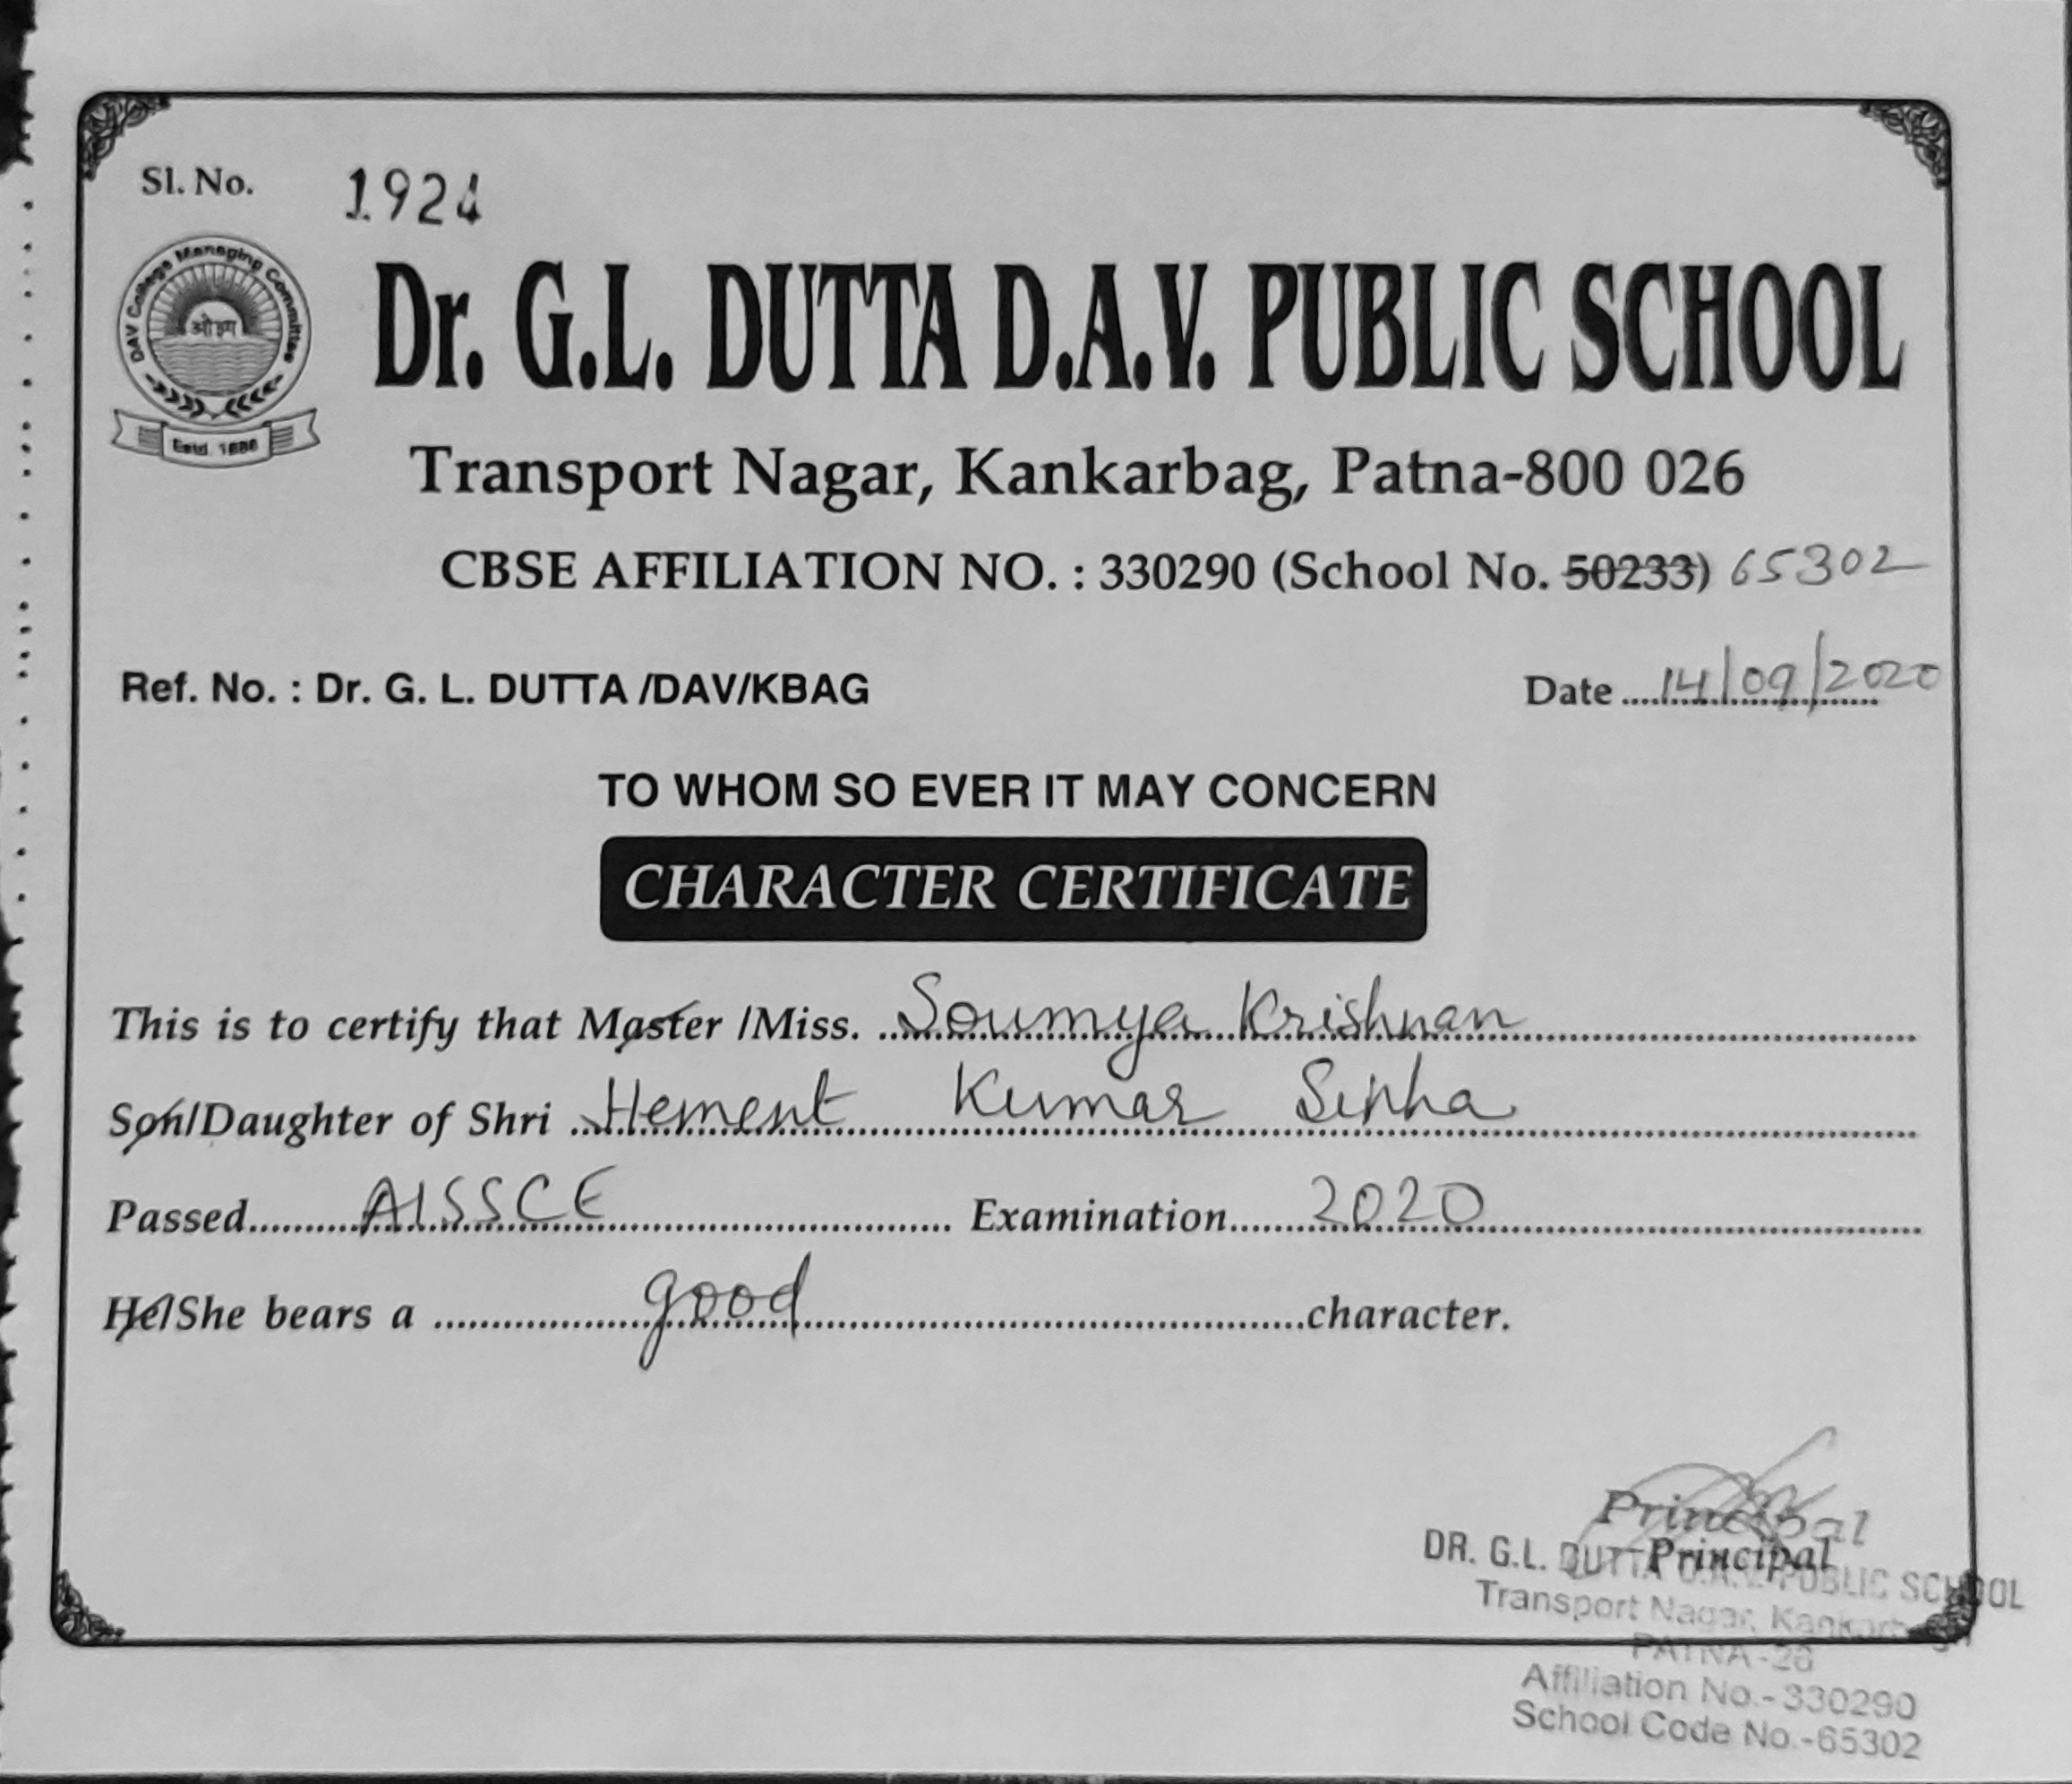 Sl. No. 1924
DAV College Managing Committee
ओ३म्
Estd. 1886
Dr. G.L. DUTTA D.A.V. PUBLIC SCHOOL
Transport Nagar, Kankarbag, Patna-800 026
CBSE AFFILIATION NO. : 330290 (School No. 50233) 65302
Ref. No. : Dr. G. L. DUTTA /DAV/KBAG Date 14/09/2020
TO WHOM SO EVER IT MAY CONCERN
CHARACTER CERTIFICATE
This is to certify that Master /Miss. Soumya Krishnan
Son/Daughter of Shri Hement Kumar Sinha
Passed AISSCE Examination 2020
He/She bears a good character.
Principal
Principal
DR. G.L. DUTTA D.A.V. PUBLIC SCHOOL
Transport Nagar, Kankarbagh
PATNA-26
Affiliation No.-330290
School Code No.-65302